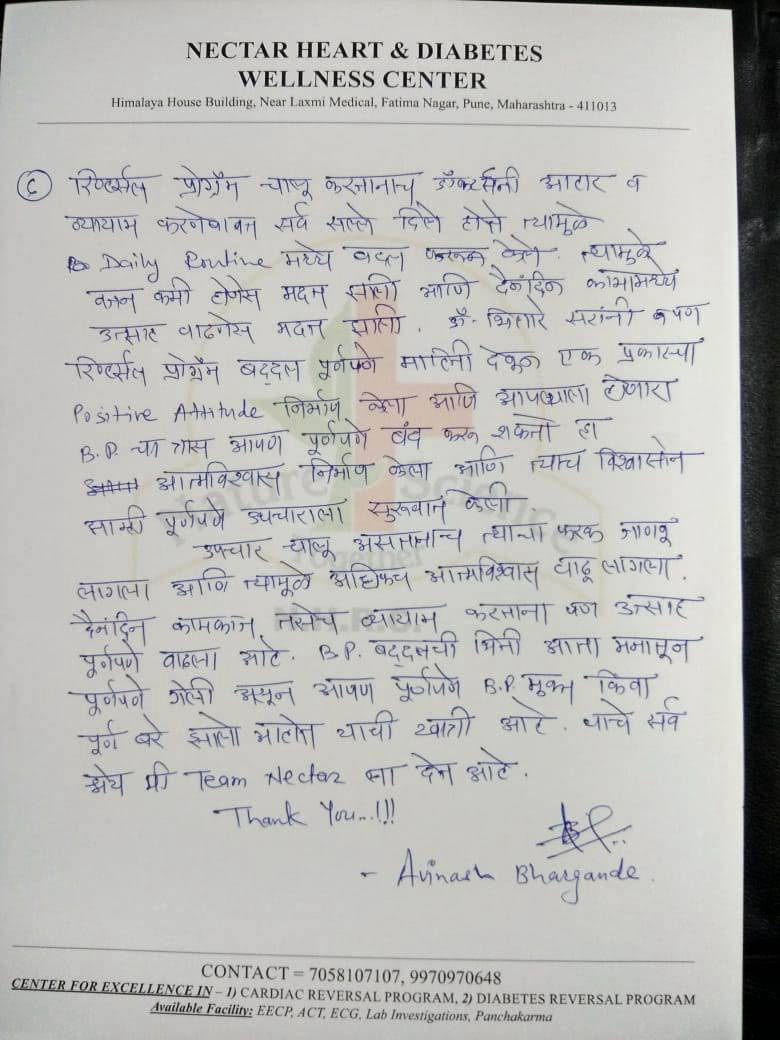 NECTAR HEART & DIABETES
WELLNESS CENTER
Himalaya House Building, Near Laxmi Medical, Fatima Nagar, Pune, Maharashtra - 411013
रिव्हर्सल प्रोग्रॅम चालू करतानाच डॉक्टर्सनी आहार व
व्यायाम करणेबाबत सर्व सल्ले दिले होते त्यामुळे
Daily Routine मध्ये बदल केले. त्यामुळे
वजन कमी होणेस मदत झाली आणि दैनंदिन कामामध्ये
उत्साह वाढणेस मदत झाली. डॉ. सरांनी पण
रिव्हर्सल प्रोग्रॅम बद्दल पूर्णपणे माहिती देवून एक प्रकारचा
Positive Attitude निर्माण केला आणि आपल्याला होणारा
B.P. चा त्रास आपण पूर्णपणे बंद करू शकतो हा
आत्मविश्वास निर्माण केला आणि त्याच विश्वासाने
आम्ही पूर्णपणे उपचाराला सुरूवात केली.
उपचार चालू असतानाच त्याचा फरक जाणवू
लागला आणि त्यामुळे अधिकच आत्मविश्वास वाढू लागला.
दैनंदिन कामकाज तसेच व्यायाम करताना पण उत्साह
पूर्णपणे वाढला आहे. B.P. बद्दलची भिती आता मनातून
पूर्णपणे गेली असून आपण पूर्णपणे B.P. मुक्त किंवा
पूर्ण बरे झालो आहोत याची खात्री आहे. याचे सर्व
श्रेय मी Team Nectar ला देत आहे.
Thank You...!!!
- Avinash Bhargande.
Nature Science
Together
N.H.R.C.
CONTACT = 7058107107, 9970970648
CENTER FOR EXCELLENCE IN – 1) CARDIAC REVERSAL PROGRAM, 2) DIABETES REVERSAL PROGRAM
Available Facility: EECP, ACT, ECG, Lab Investigations, Panchakarma